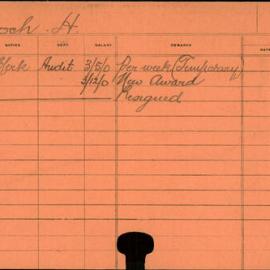 och H.
DUTIES DEPT. SALARY REMARKS DATE
Clerk Audit 3/5/0 Per week (Temporary)
3/12/0 New Award
Resigned